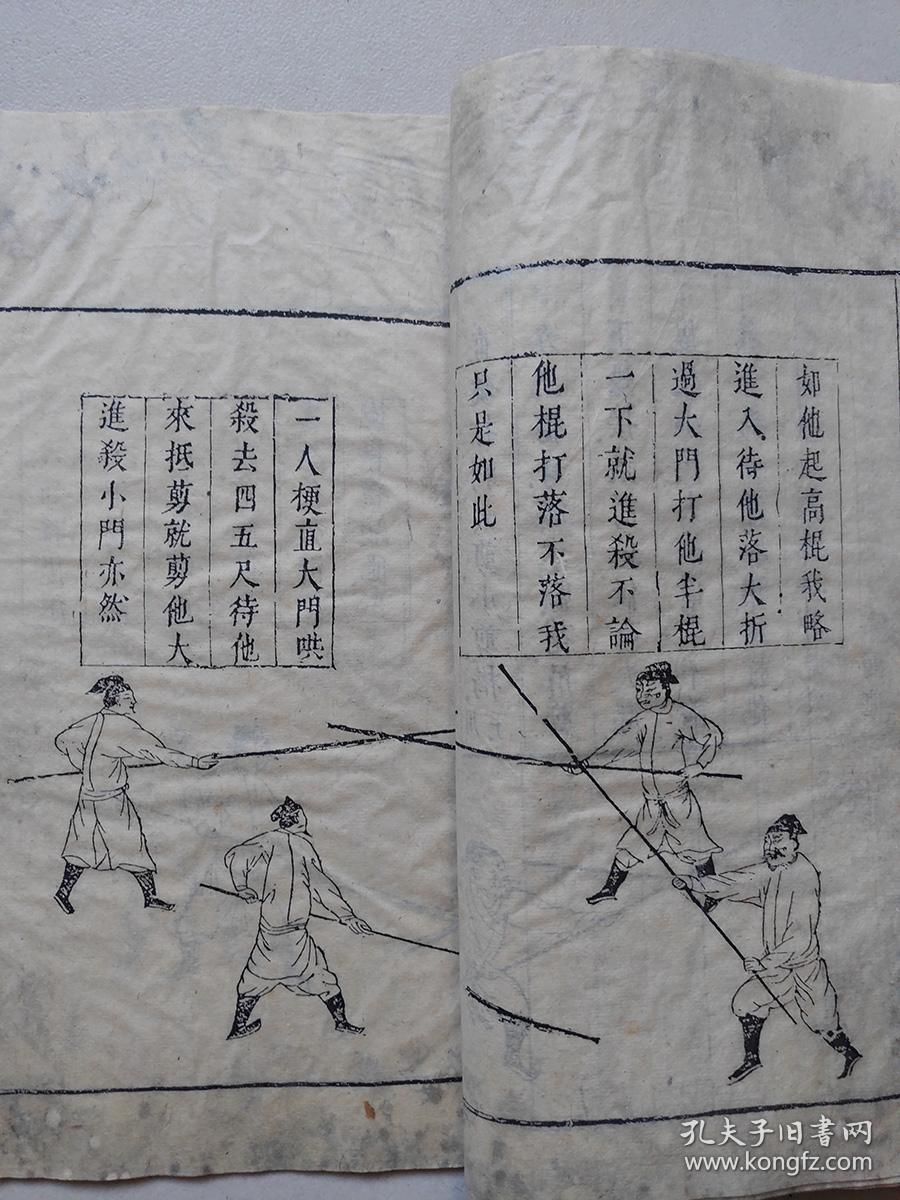 如他起高棍我略
進入待他落大折
過大門打他半棍
一下就進殺不論
他棍打落不落我
只是如此
一人梗直大門哄
殺去四五尺待他
來抵剪就剪他大
進殺小門亦然
孔夫子旧書网
www.kongfz.com